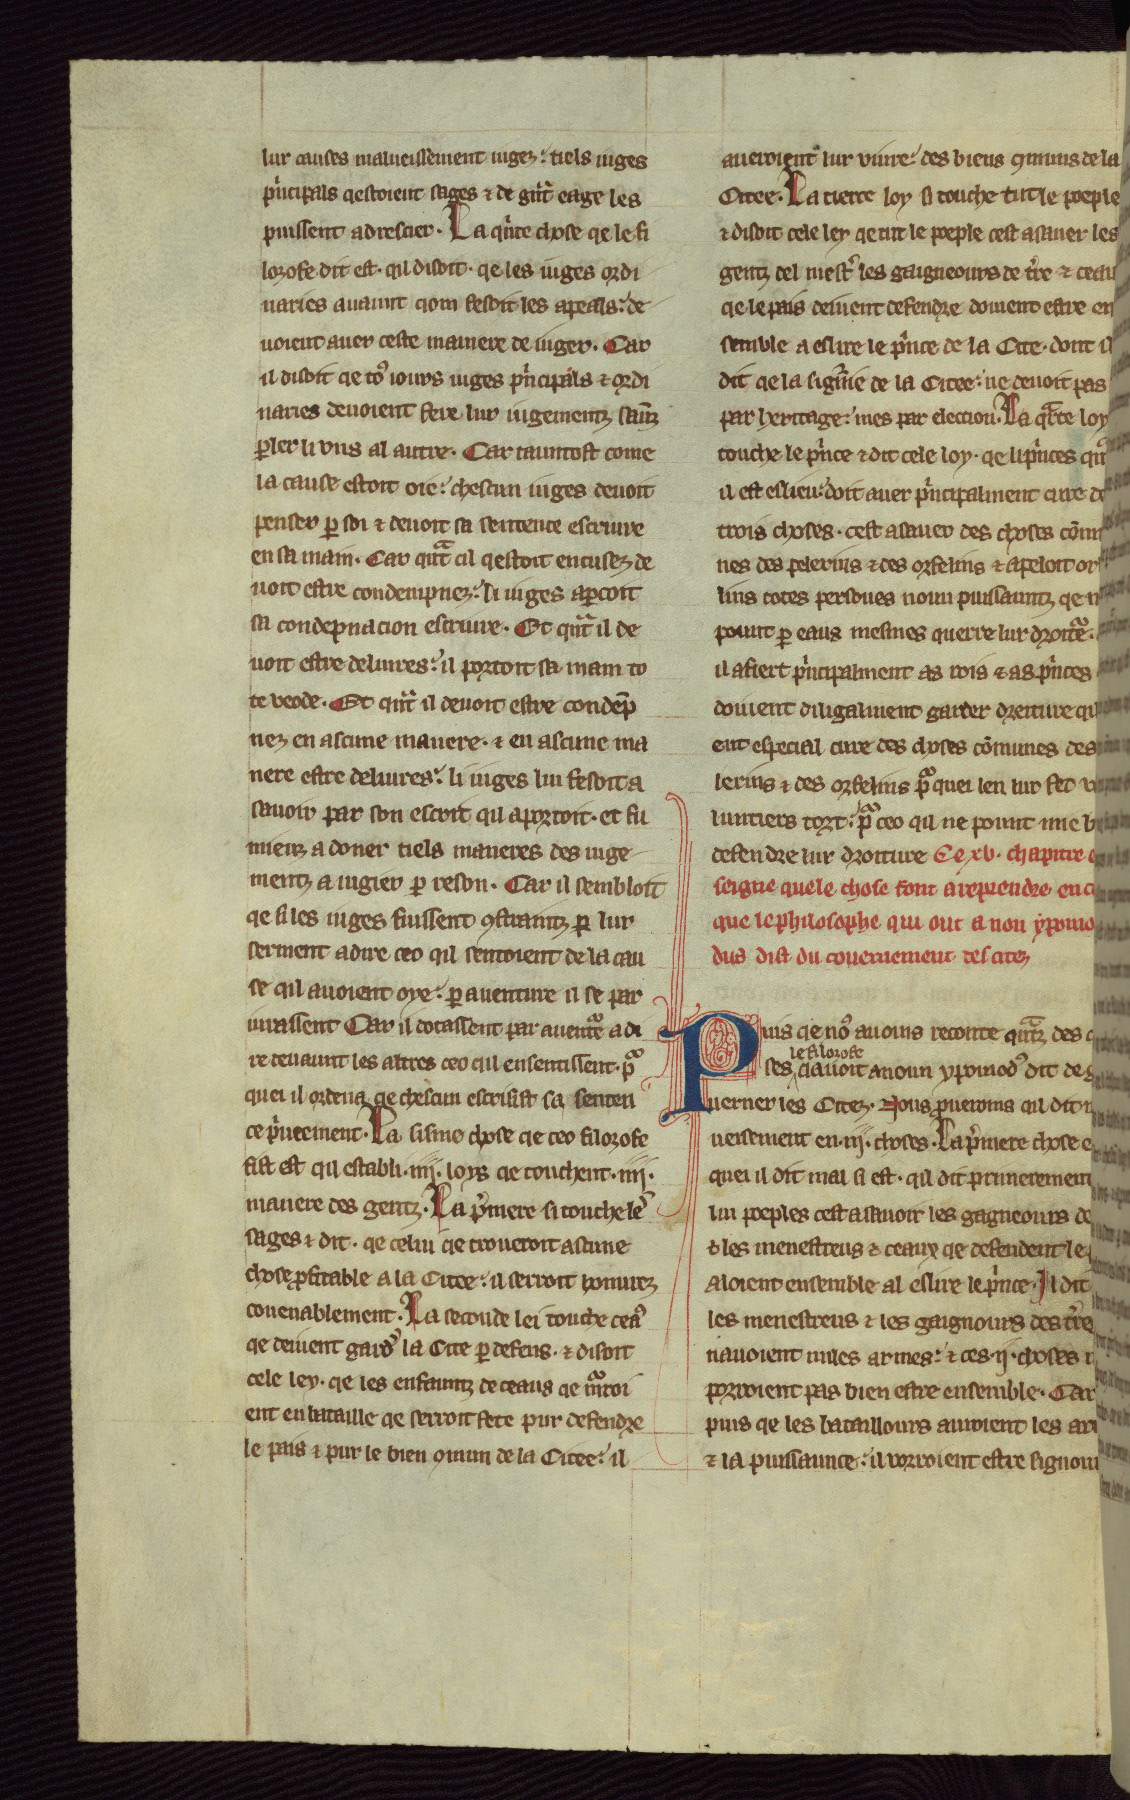 lur causes malueissement iugez: tiels iuges
p'ncipals qestoient sages ⁊ de g̃nt eage les
puissent adrescier. La qinte chose qe le fi
lozofe dit est. qil disoit. qe les iuges ordi
naries auaunt qom fesoit les apeals: de
uoient auer ceste mainere de iuger. Car
il disoit qe to9 iours iuges p'ncipals ⁊ ordi
naries deuoient fere lur iugementz saunz
ꝑler li vns al autre. Car tauntost come
la cause estoit oie: chescun iuges deuoit
penser ꝑ soi ⁊ deuoit sa sentence escriure
en sa main. Car qnt cil qestoit encusez de
uoit estre condempnez: li iuges aportoit
sa condepnacion escriure. Et qnt il de
uoit estre deliures: il portoit sa main to
te veode. Et qnt il deuoit estre condep̃
nez en ascune manere. ⁊ en ascune ma
nere estre deliures: li iuges lui fesoit a
sauoir par son escrit qil aportoit. et fu
mieuz a doner tiels maneres des iuge
mentz a iugier ꝑ reson. Car il sembloit
qe si les iuges fuissent 9straintz ꝑ lur
serment a dire ceo qil sentoient de la cau
se qil auoient oye: ꝑ auenture il se par
iurassent Car il dotassent par auent'e a di
re deuaunt les altres ceo qil ensentissent. pͣ
quei il ordena qe chescun escrisist sa senten
ce p'ueement. La sisme chose qe ceo filozofe
fist est qil establi .iiii. loys qe touchent .iiii.
manere des gentz. La p'mere si touche le9
sages ⁊ dit. qe celui qe troueroit ascune
chose ꝓfitable a la Citee: il serroit honurez
couenablement. La seconde lei touche cea9
qe deiuent gard' la Cite ꝑ defens. ⁊ disoit
cele ley. qe les enfauntz de ceaus qe mͣroi
ent en bataille qe serroit fete pur defendre
le pais ⁊ pur le bien 9mun de la Citee: il
aueroient lur viure: des biens 9muns de la
Citee. La tierce loy si touche tut le poeple
⁊ disoit cele ley qe tut le poeple cest asauer les
gentz del mest' les gaigneours de t're ⁊ ceau
qe le pais deiuent defendre doiuent estre en
semble a eslire le p'nce de la Cite. dont il
dit qe la sign'ie de la Citee: ne deuoit pas
par heritage: mes par eleccion. La qrte loy
touche le p'nce ⁊ dit cele loy. qe li p'nces qn
il est eslieu: doit auer p'ncipalment cure de
trois choses. cest asauer des choses com̃
nes des pelerins ⁊ des orfelins ⁊ apeloit or
lins totes persones noun puissauntz qe n
pount ꝑ eaus mesmes querre lur droiture.
il afiert p'ncipalment as rois ⁊ as p'nces
doiuent diligalment garder dreiture qu
ent especial cure des choses cõmunes des
lerins ⁊ des orfelins pͣ quei len lur fet v
luntiers tort: pͣ ceo qil ne pount mie b
defendre lur droiture Ce xv. chapitre
seigne quele chose font a reprendre en c
que le philosophe qui out a non ypomo
dus dist du gouernement des citez
Puis qe no9 auons reconte qntz des
ses qauoit a noun ypomod9 dit de g
le filozofe
uerner les Citez. Nous ꝓueroms qil dit
uersement en .iij. choses. La p'mere chose e
quei il dit mal si est. qil dit primerement
lui poeples cest asauoir les gagneours de
⁊ les menestreus ⁊ ceaux qe defendent le
aloient ensemble al eslire le p'nce. Il dit
les menestreus ⁊ les gaignours des t're
nauoient nules armes: ⁊ ces .ij. choses n
porroient pas bien estre ensemble. Car
puis qe les bataillours auroient les ar
⁊ la puissaunce: il vorroient estre signou